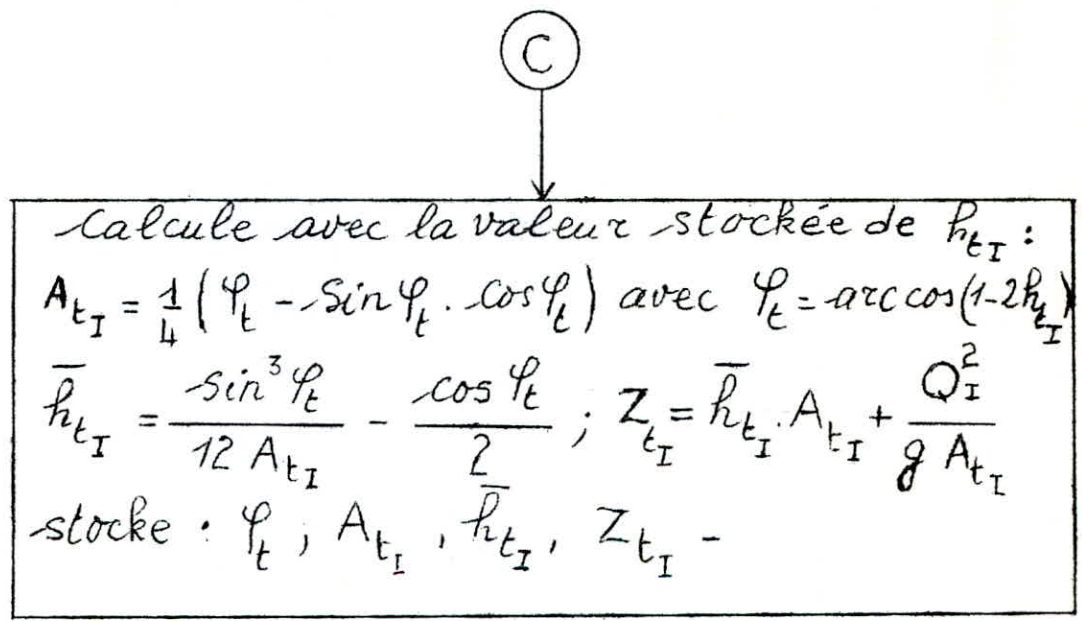 C
Calcule avec la valeur stockée de h_{t_I} :
A_{t_I} = 1/4 (φ_t - Sin φ_t . Cos φ_t) avec φ_t = arc cos(1-2h_{t_I})
h̄_{t_I} = sin³ φ_t / 12 A_{t_I} - cos φ_t / 2 ; Z_{t_I} = h̄_{t_I} . A_{t_I} + Q_I² / g A_{t_I}
stocke : φ_t ; A_{t_I} , h̄_{t_I} , Z_{t_I} -